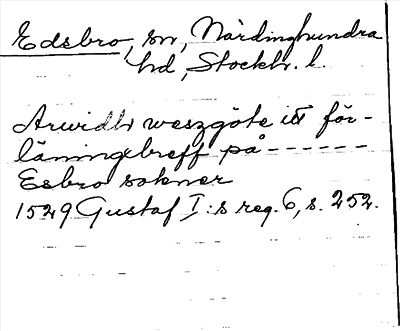 Edsbro, sn, Närdinghundra
hd, Stockh. l.
Arwidh weszgöte itt för-
läningxbreff på ------
Esbro sokner
1529 Gustaf I:s reg. 6, s. 252.